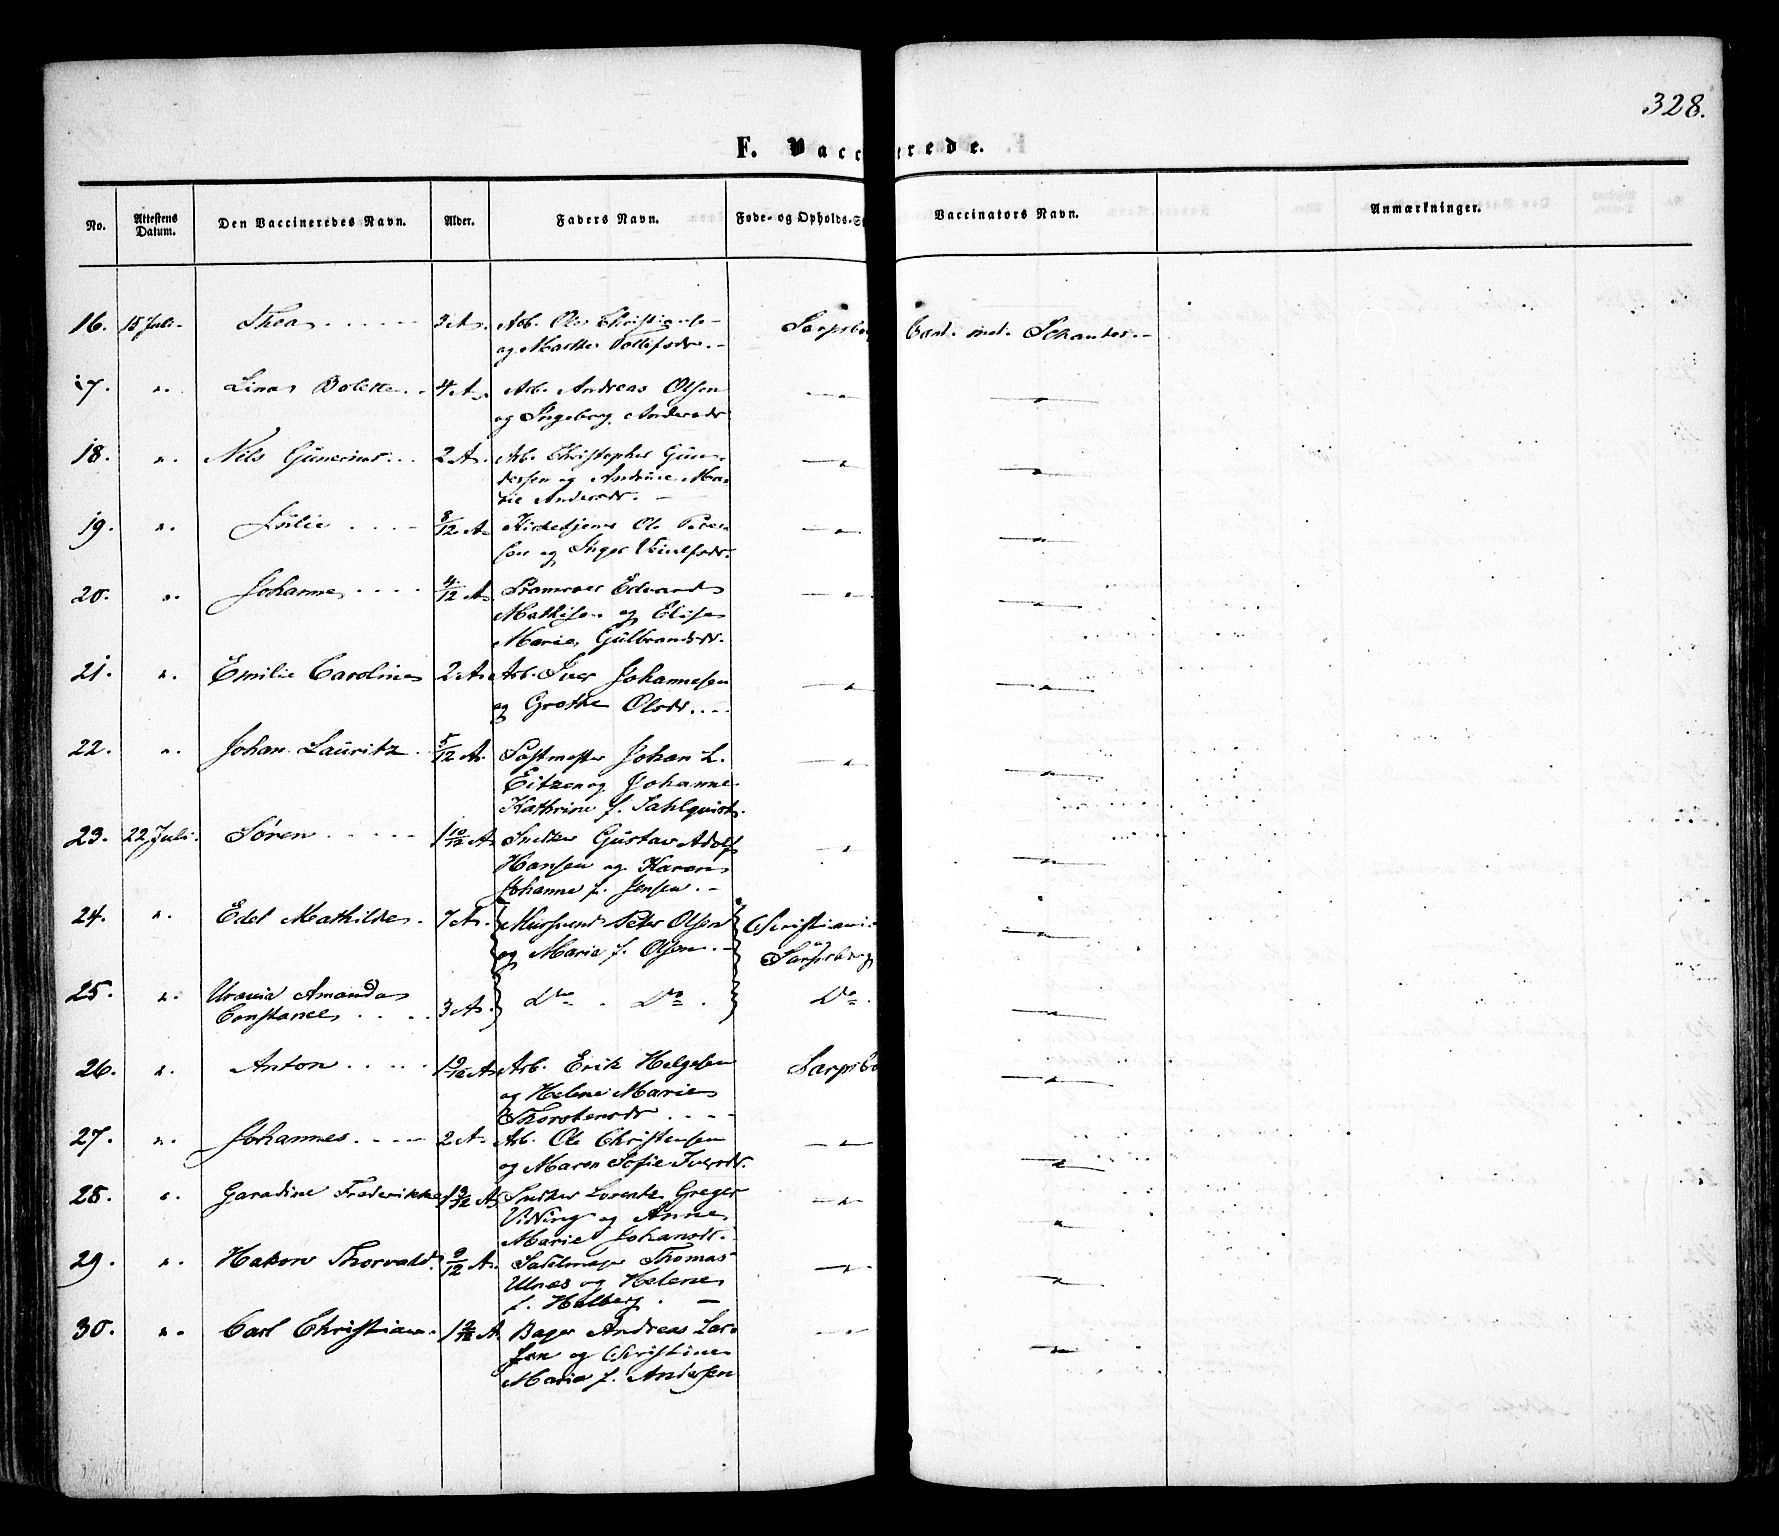 328.
F. Vacc erede.
No. Attestens Datum. Den Vaccineredes Navn. Alder. Faders Navn. Føde- og Opholds-S Vaccinators Navn. Anmærkninger.
16. 15 Juli. Thea 3 A. Arb. Ole Sarpsbo Cand. med.
og Marthe
17. " Lina Bolette 4 A. Arb. Andreas Olsen — " — — " —
og Ingeborg Andersdr
18. " Nils Gunerius 2 A. Arb. Christopher Gun- — " — — " —
dersen og Andrine Ma-
rie Andersdr. —
19. " Julie 8/12 A. Ole Peter- — " — — " —
sen og Inger
20. " Johanne 4/12 A. Edvard — " — — " —
Mathisen og Elise
Marie Gulbrandsdr.
21. " Emilie Caroline 2 A. Arb. Iver Johannesen — " — — " —
og Grethe Olsdr.
22. " Johan Lauritz 5/12 A. Postmester Johan L. — " — — " —
Eitzen og Johanne
Kathrine f. Sahlqvist.
23. 22 Juli. Søren 1 10/12 A. Snedker Gustav Adolf — " — — " —
Hansen og Karen
Johanne f. Jensen. —
24. " Edel Mathilde 7 A. Peter Olsen Christiania — " —
og Marie f. Olsen. — Sarpsborg
25. " Urania Amanda
Constance 3 A. Do. Do. Do. — " —
26. " Anton A. Arb. Erik Helgesen Sarpsbo — " —
og Helene Marie
Thorstensdr
27. " Johannes 2 A. Arb. Ole Christensen — " — — " —
og Maren Sofie Iversdr.
28. " Garadine Frederikke A. Snedker Lorentz Greger — " — — " —
og Anne
Marie Johansdr.
29. " Hakon Thorvald. 9/12 A. Sadelmager Thomas — " — — " —
Ulnes og Helene
f. Halberg. —
30. " Carl Christian. A. Bager Andreas Lar- — " — — " —
sen og Christine
Marie f. Andersen